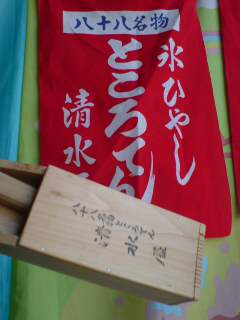 八十八名物
氷ひやし
ところてん
清水
八十八名物ところてん
清水屋